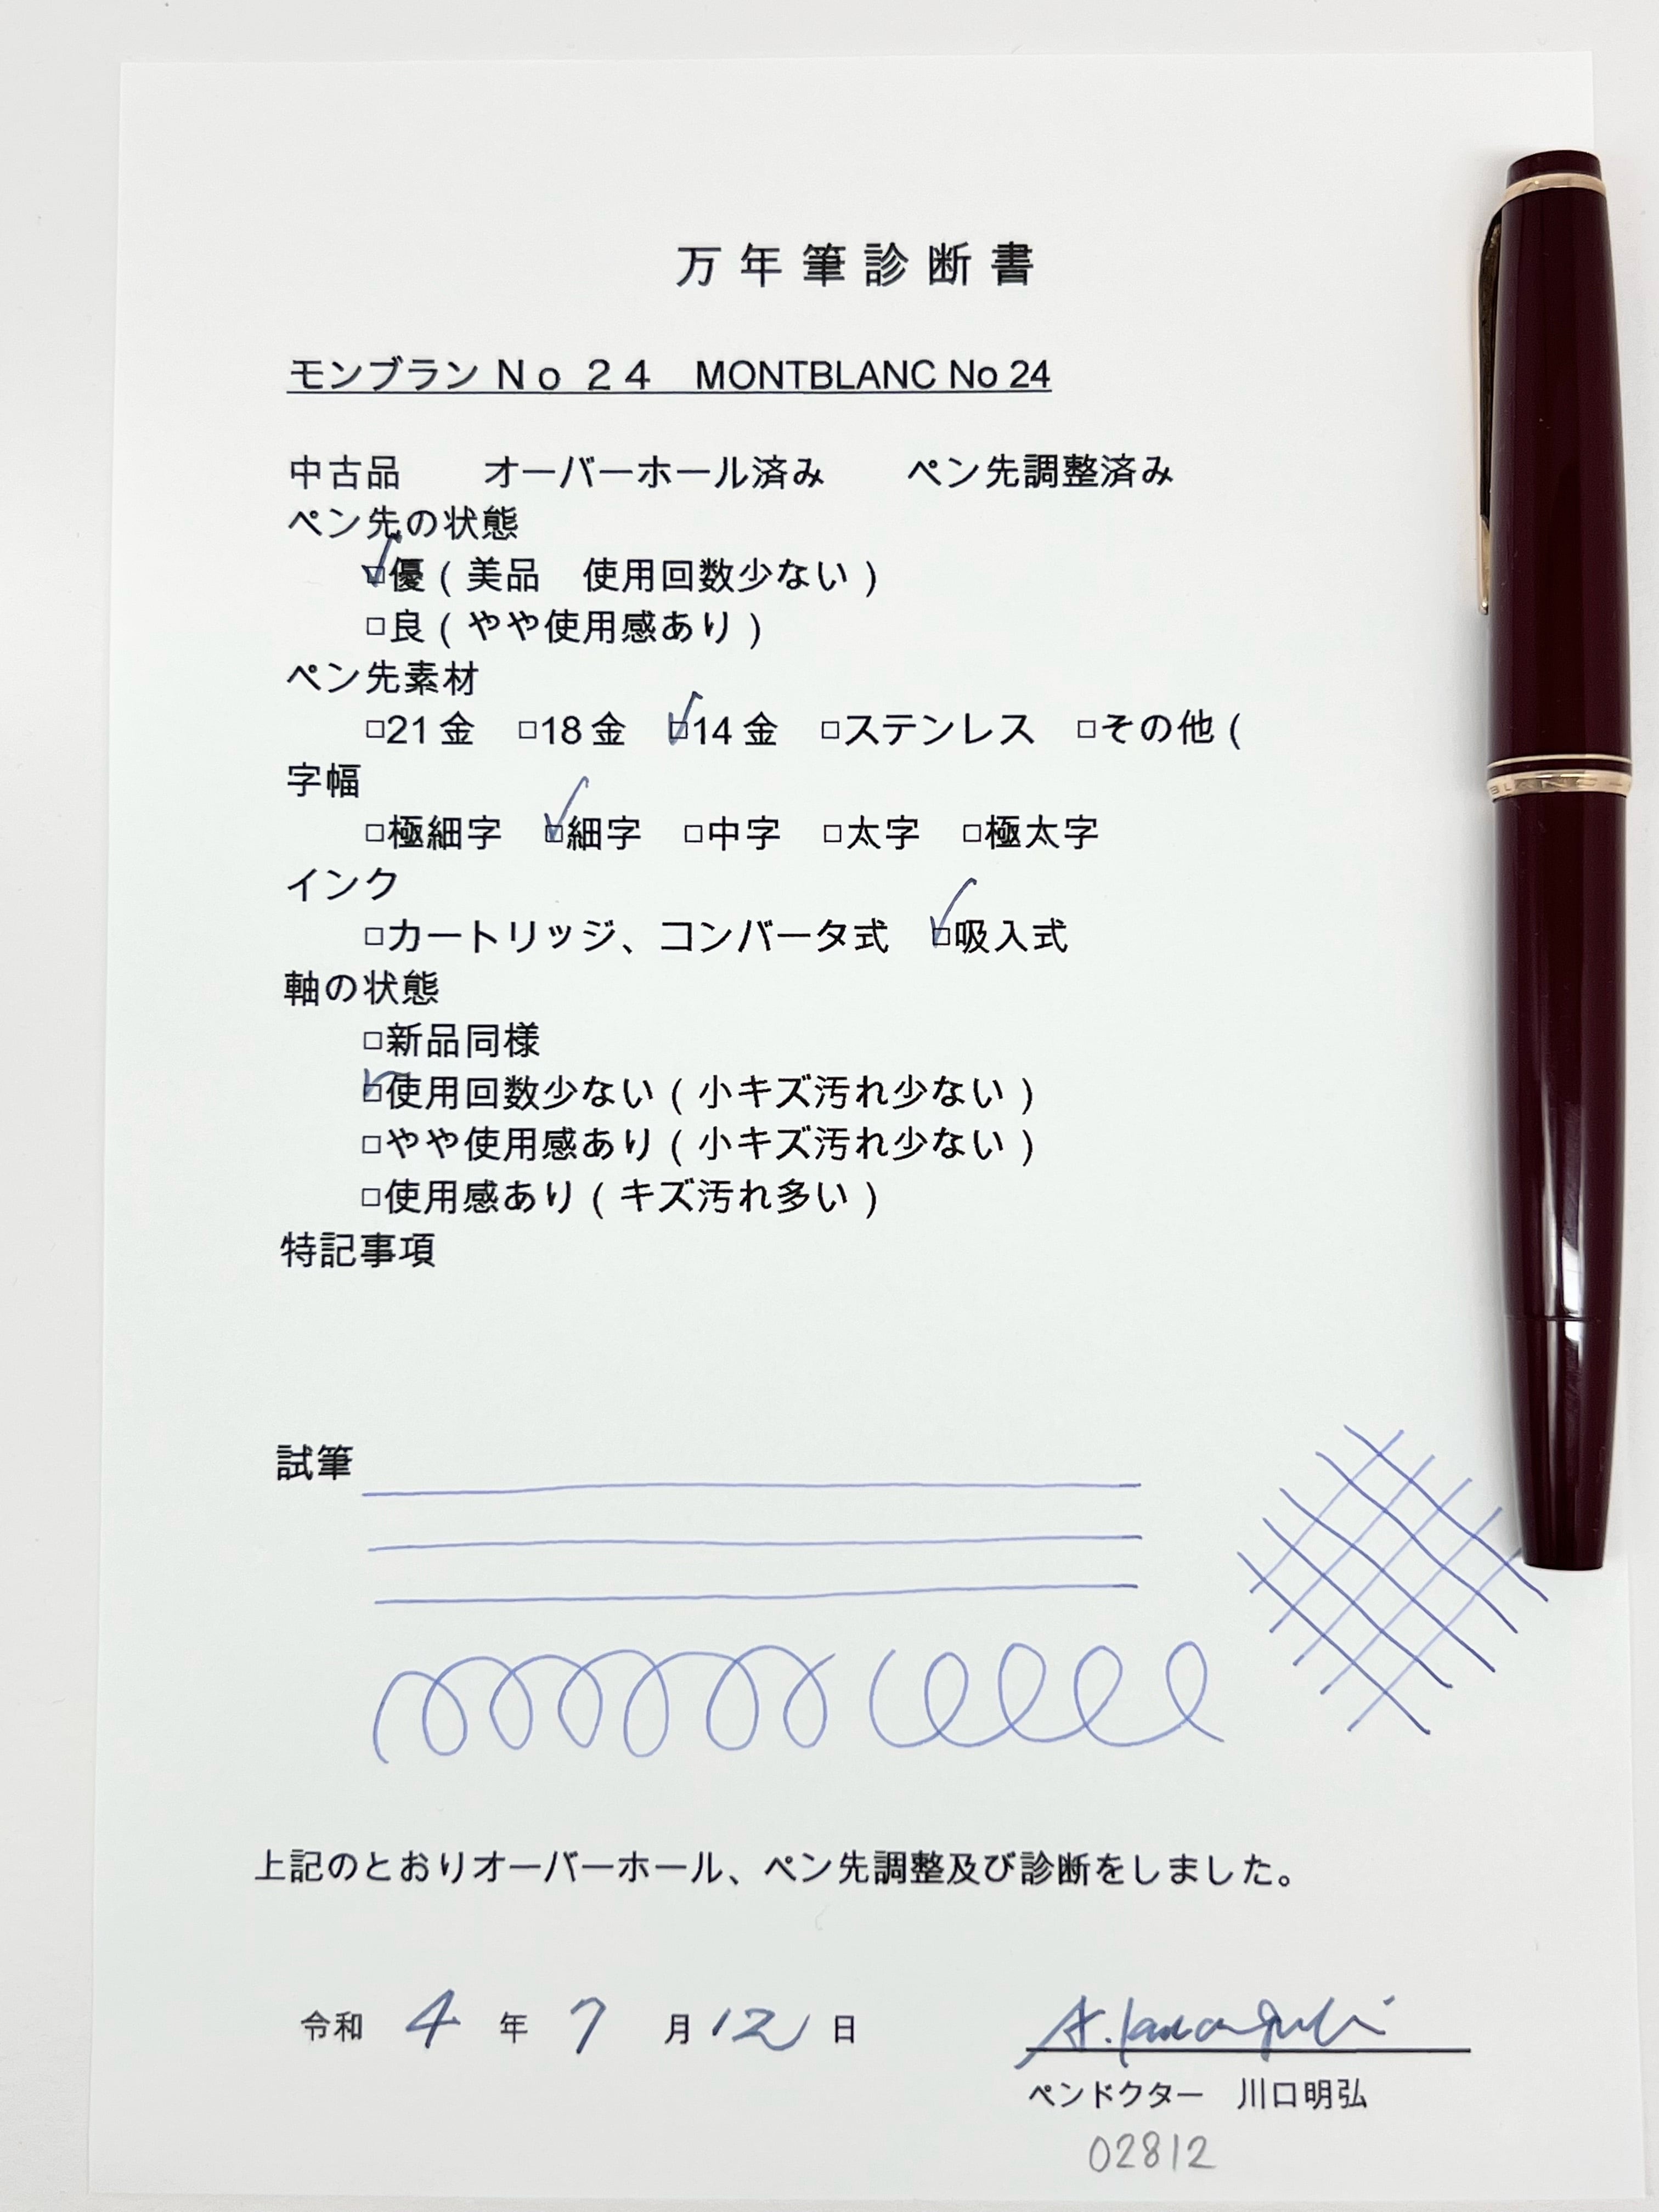 万年筆診断書
モンブランＮｏ ２４　MONTBLANC No 24
中古品　　オーバーホール済み　　ペン先調整済み
ペン先の状態
☑優（美品　使用回数少ない）
□良（やや使用感あり）
ペン先素材
□21金　□18金　☑14金　□ステンレス　□その他（
字幅
□極細字　☑細字　□中字　□太字　□極太字
インク
□カートリッジ、コンバータ式　☑吸入式
軸の状態
□新品同様
☑使用回数少ない（小キズ汚れ少ない）
□やや使用感あり（小キズ汚れ少ない）
□使用感あり（キズ汚れ多い）
特記事項
試筆
上記のとおりオーバーホール、ペン先調整及び診断をしました。
令和 4 年 7 月 12 日
A. Kawaguchi
ペンドクター　川口明弘
02812